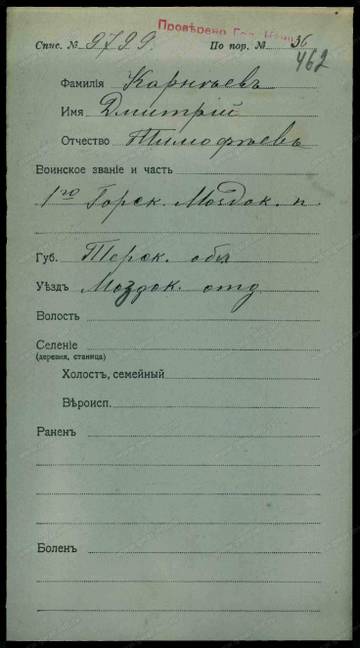 Провѣрено Гл.
Спис. № 9799. По пор. № 36
462
Фамилія Карпѣевъ
Имя Дмитрій
Отчество Тимофѣевъ
Воинское званіе и часть
1го Горск. Моздок. п.
Губ. Терск. обл
Уѣздъ Моздок. отд
Волость
Селеніе
(деревня, станица)
Холостъ, семейный
Вѣроисп.
Раненъ
Боленъ